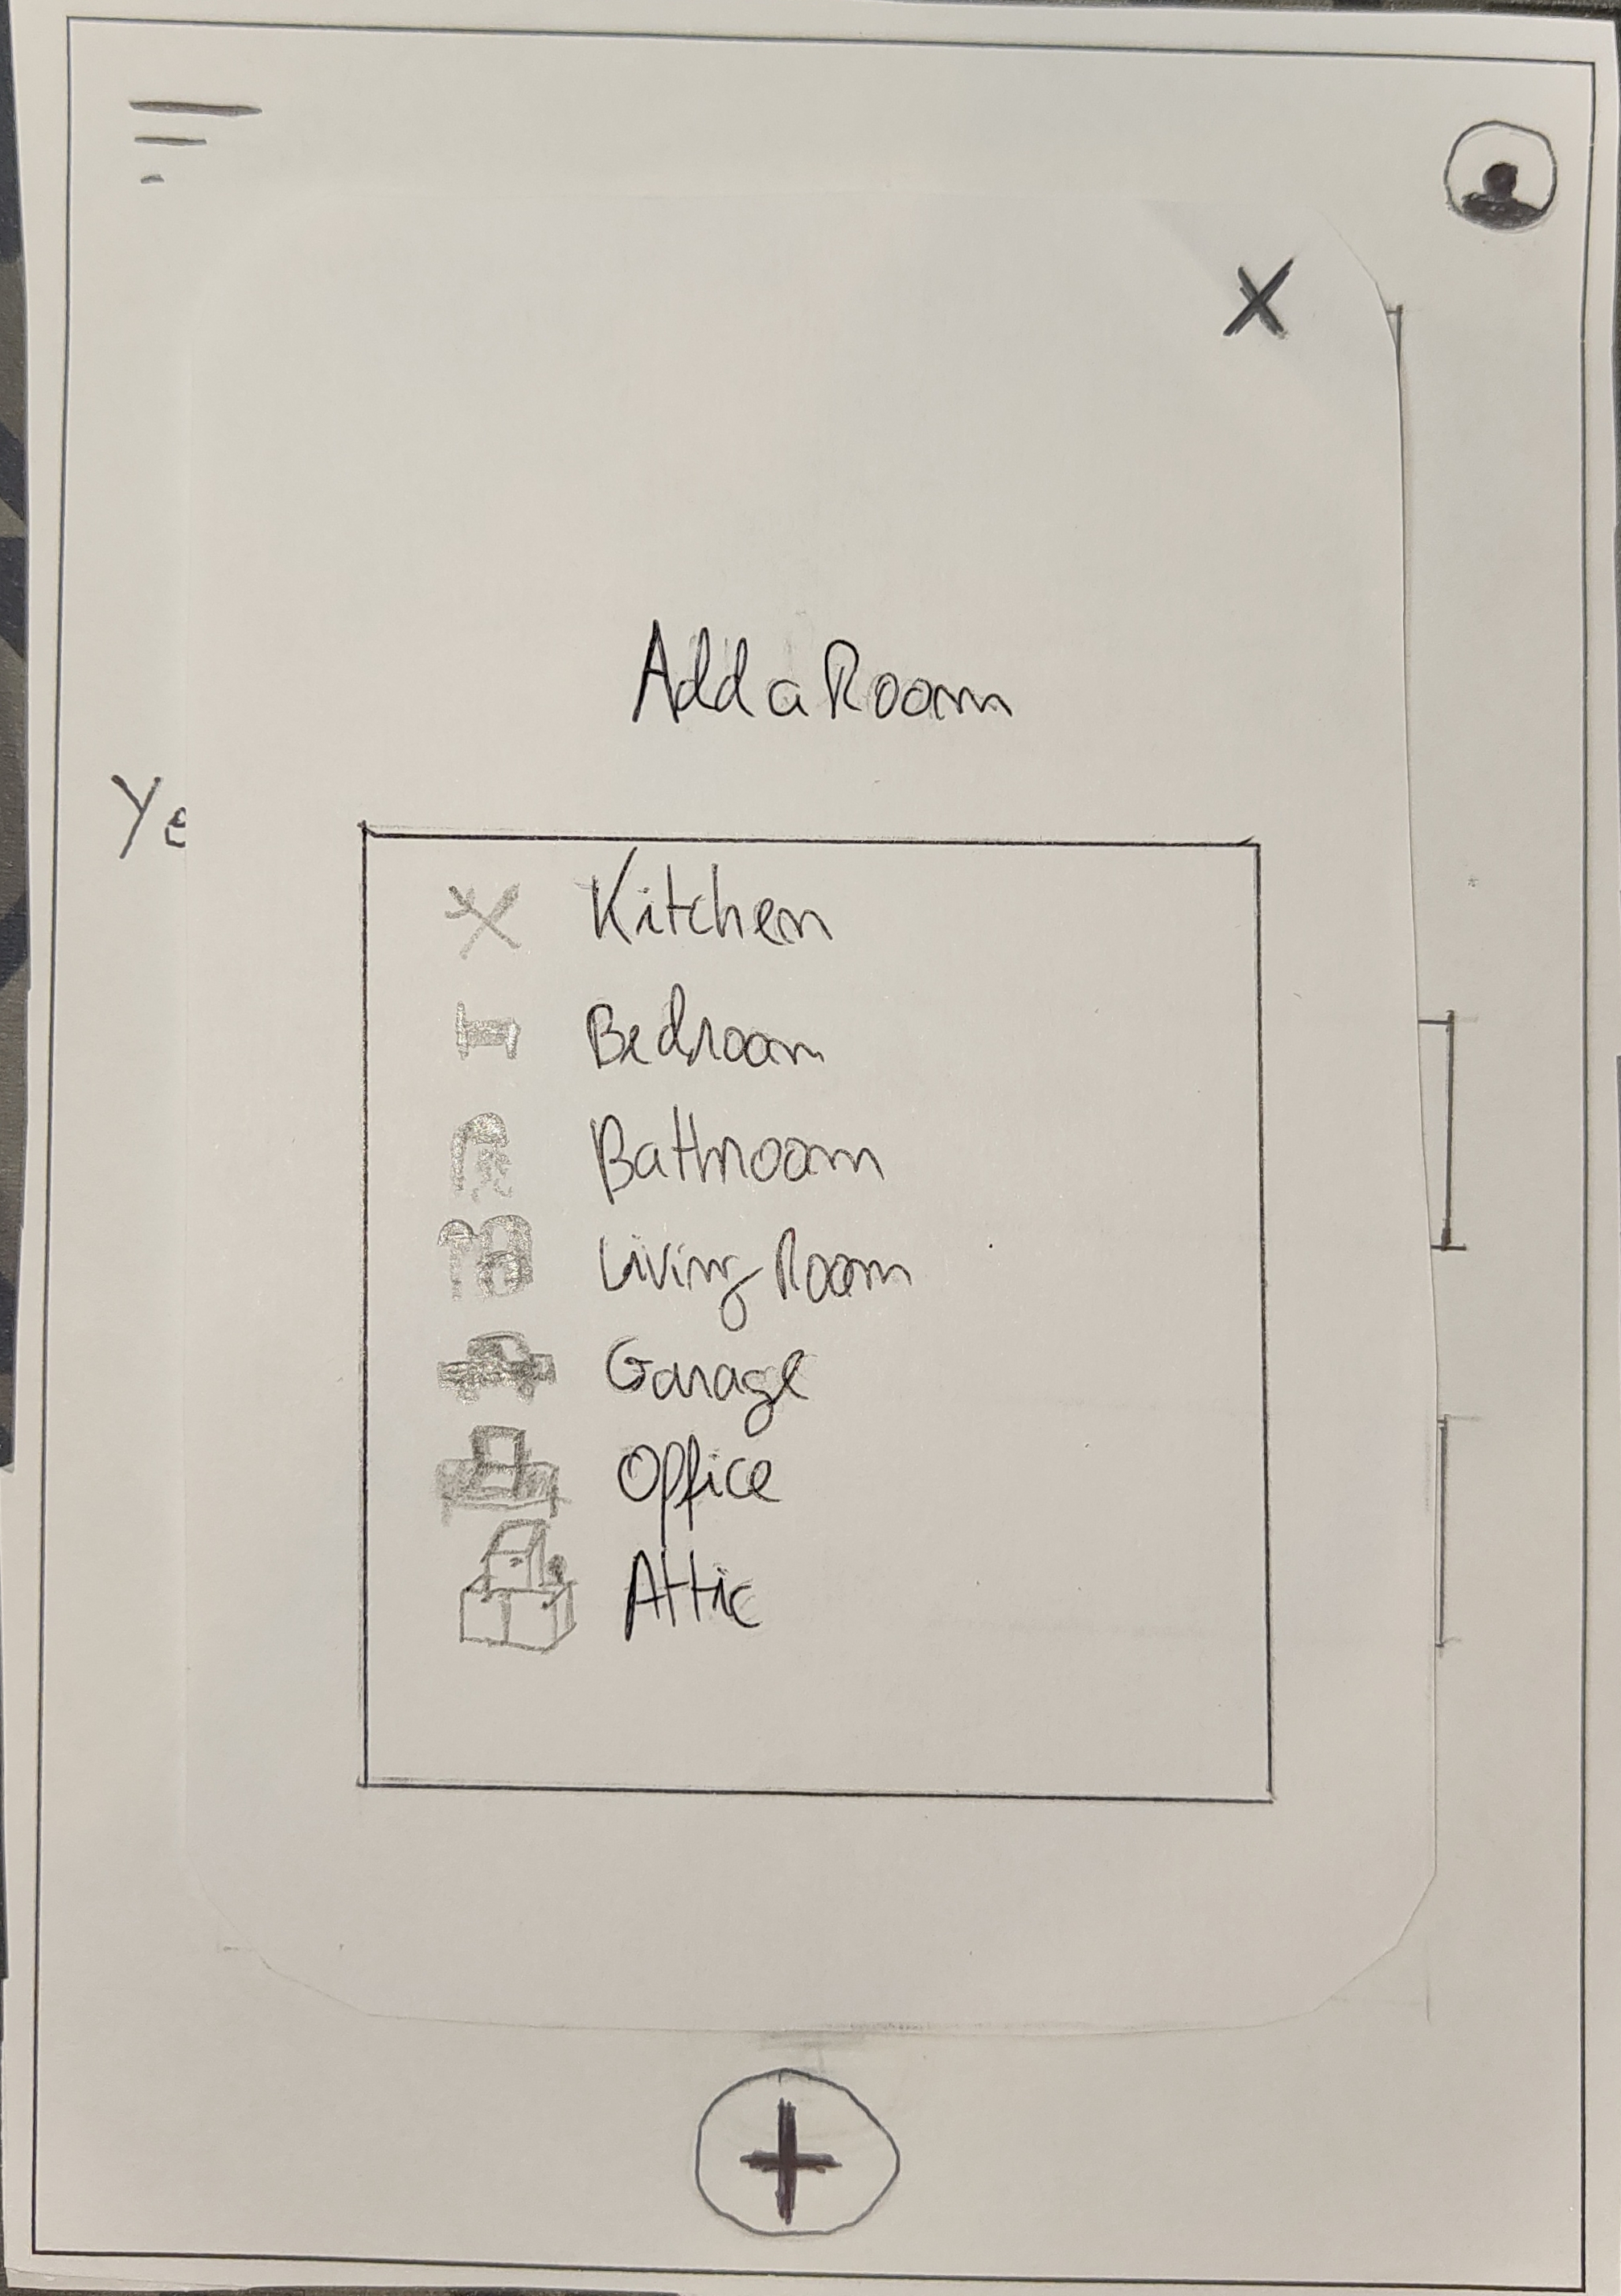 Add a Room
Ye
Kitchen
Bedroom
Bathroom
Living Room
Garage
Office
Attic